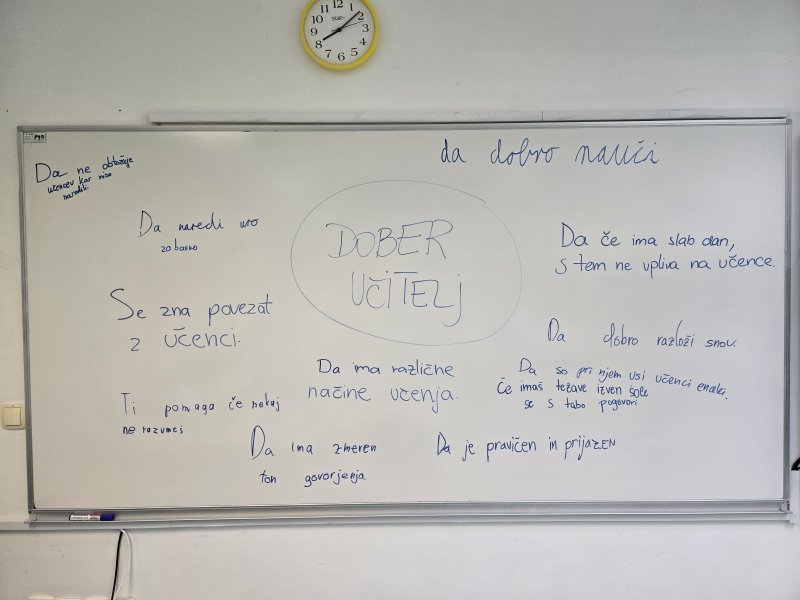 12
1
2
3
4
5
6
7
8
9
10
11
da dobro nauči
Da ne obtožuje
učencev kar niso
naredili
Da naredi uro
zabavno
DOBER
UČITELJ
Da če ima slab dan,
s tem ne vpliva na učence.
Se zna povezat
z učenci.
Da dobro razloži snov.
Da ima različne
načine učenja.
Da so pri njem usi učenci enaki.
Če imaš težave izven šole
se s tabo pogovori
Ti pomaga če nekaj
ne razumeš
Da ima zmeren
ton govorjenja
Da je pravičen in prijazen